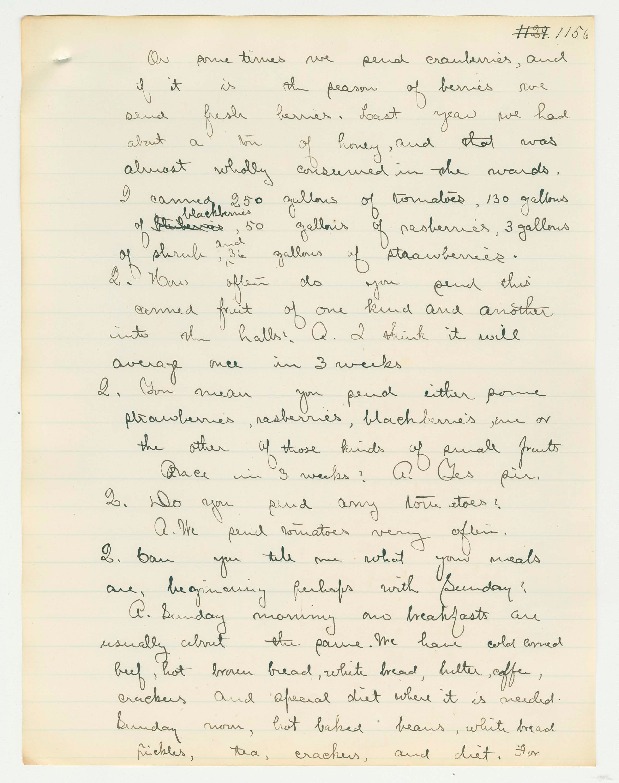 1129. 1156
Or some times we send cranberries, and
if it is the season of berries we
send fresh berries. Last year we had
about a ton of honey, and that was
almost wholly consumed in the wards.
I canned 250 gallons of tomatoes, 130 gallons
of blackberries, 50 gallons of rasberries, 3 gallons
of shrub, and 36 gallons of strawberries.
Q. How often do you send this
canned fruit of one kind and another
into the halls? A. I think it will
average once in 3 weeks
Q. You mean you send either some
strawberries, rasberries, blackberries, one or
the other of those kinds of small fruits
once in 3 weeks? A. Yes sir.
Q. Do you send any tomatoes?
A. We send tomatoes very often.
Q. Can you tell me what your meals
are, beginning perhaps with Sunday?
A. Sunday morning our breakfasts are
usually about the same. We have cold corned
beef, hot brown bread, white bread, butter, coffee,
crackers and special diet where it is needed.
Sunday noon, hot baked beans, white bread
pickles, tea, crackers, and diet. For